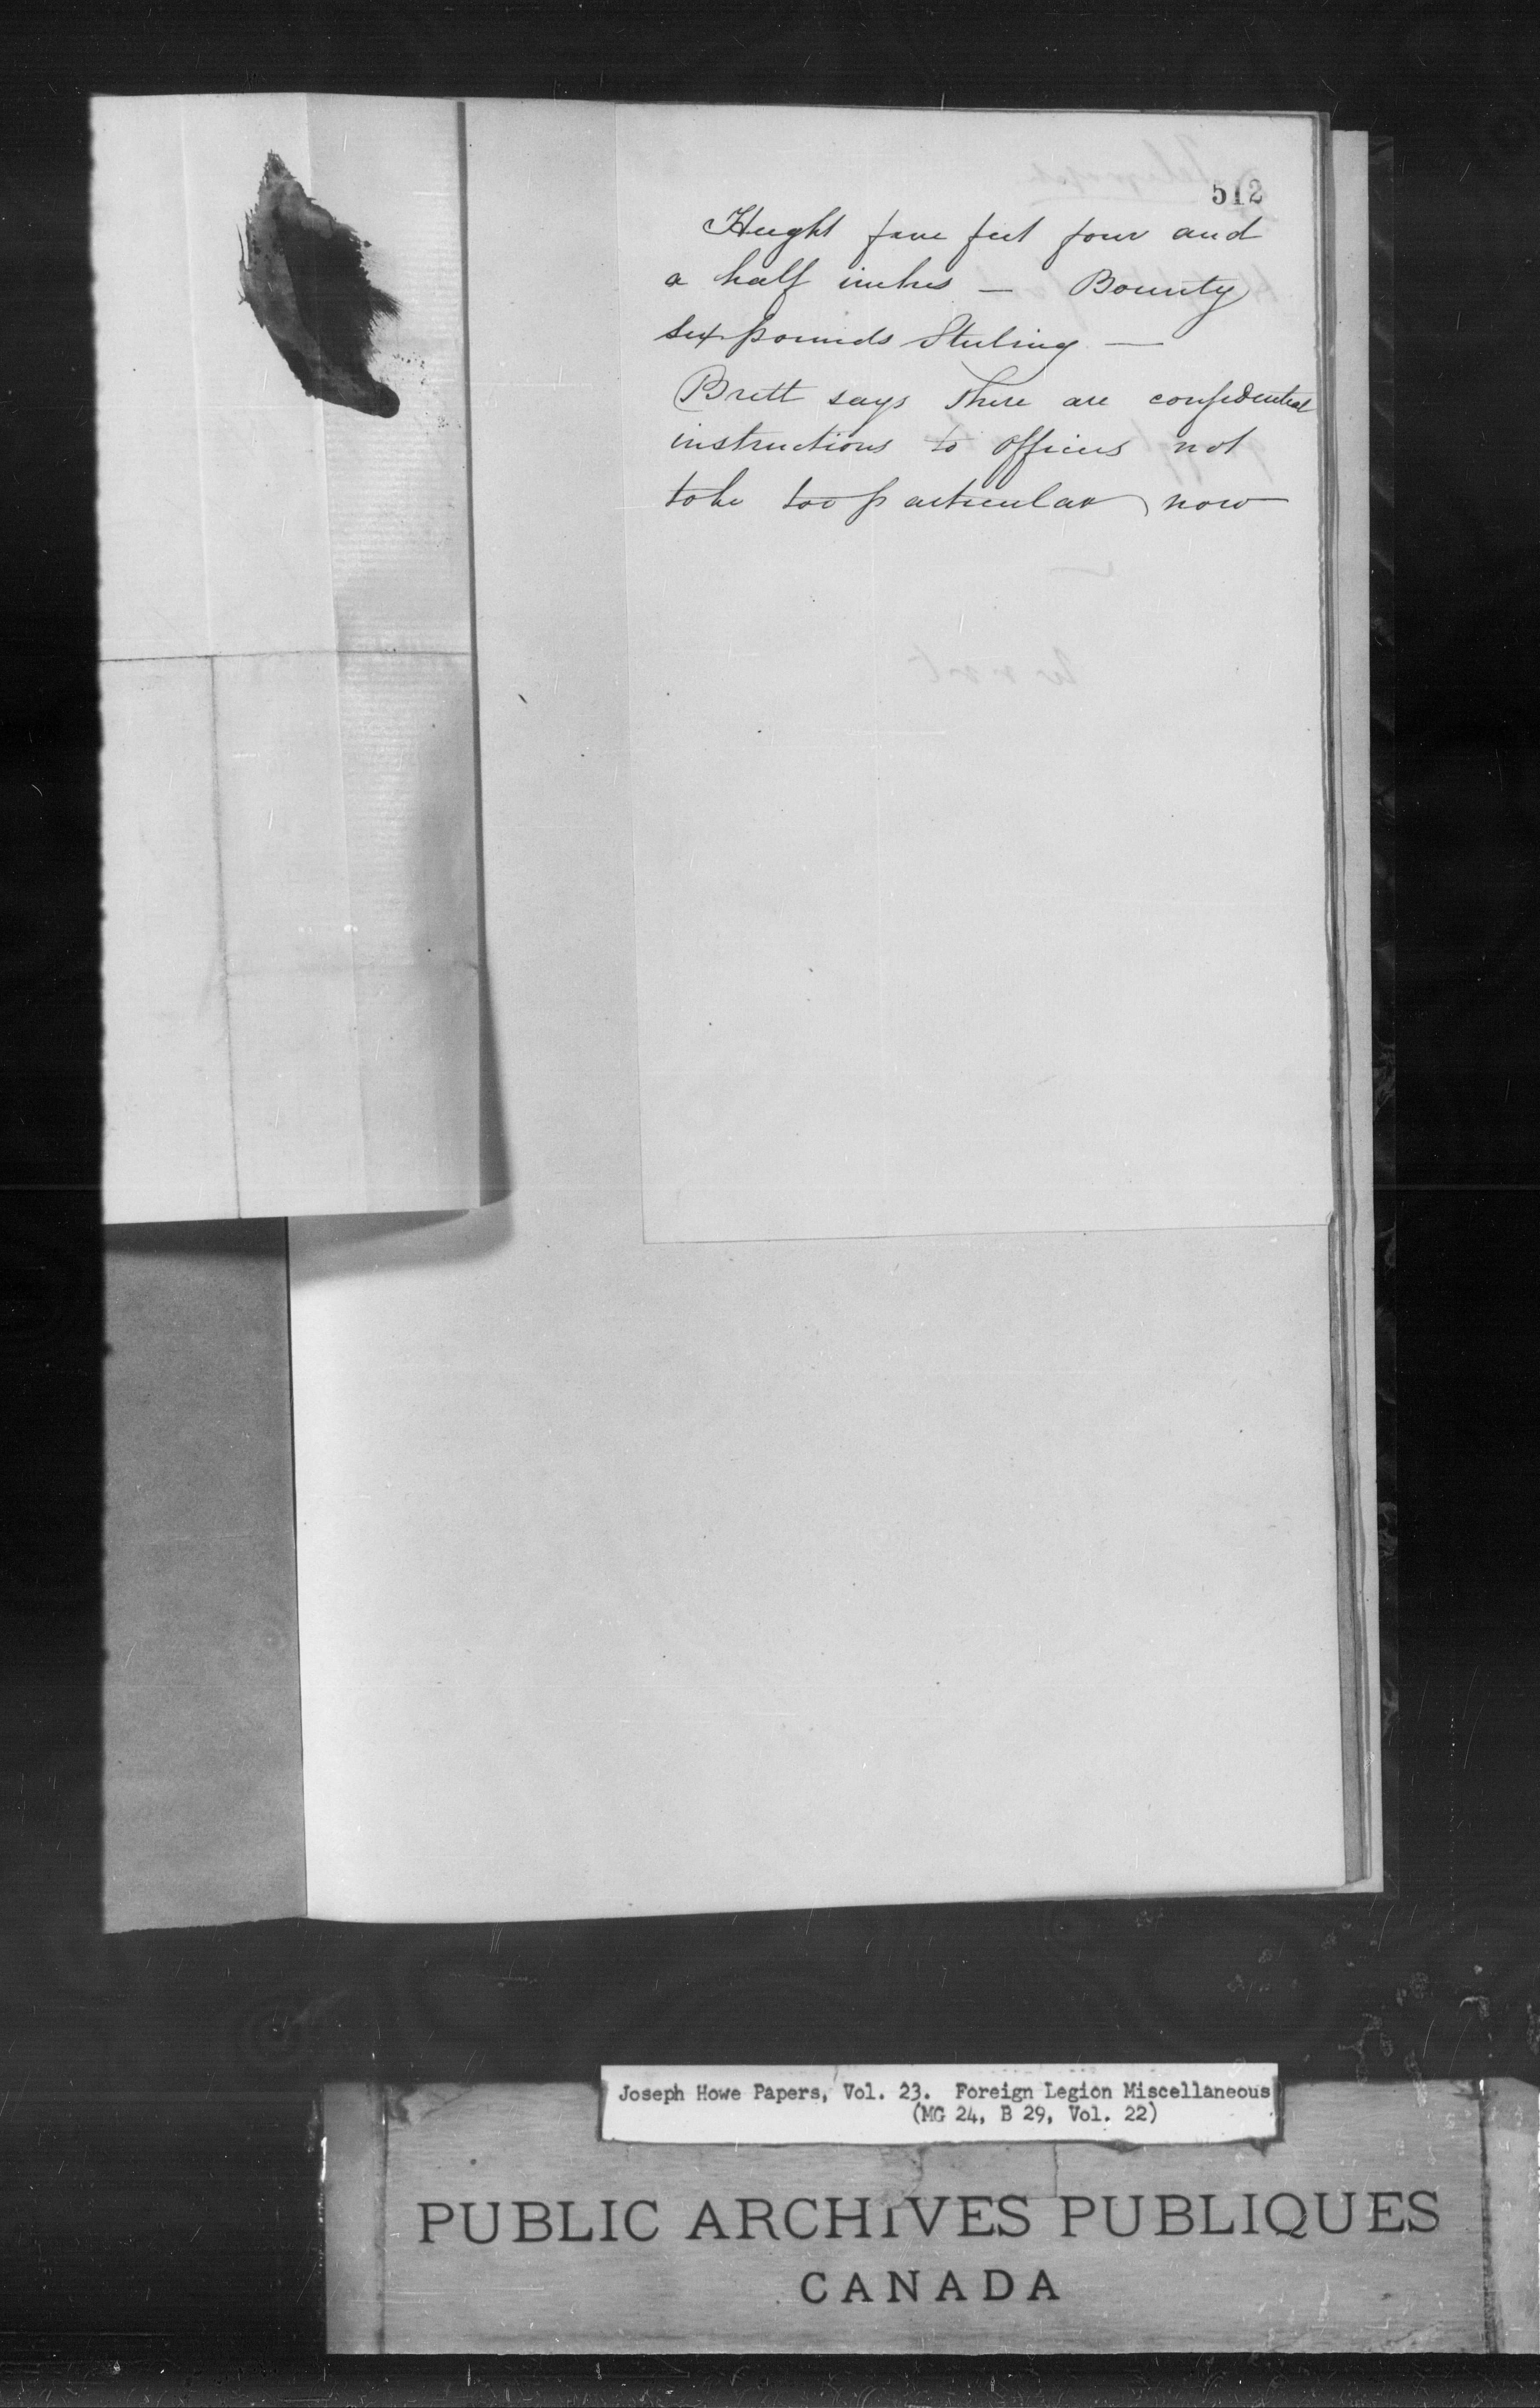 512
Height five feet four and
a half inches — Bounty
six pounds Sterling —
Brett says there are confidential
instructions to officers not
to be too particular now
Joseph Howe Papers, Vol. 23. Foreign Legion Miscellaneous
(MG 24, B 29, Vol. 22)
PUBLIC ARCHIVES PUBLIQUES
CANADA